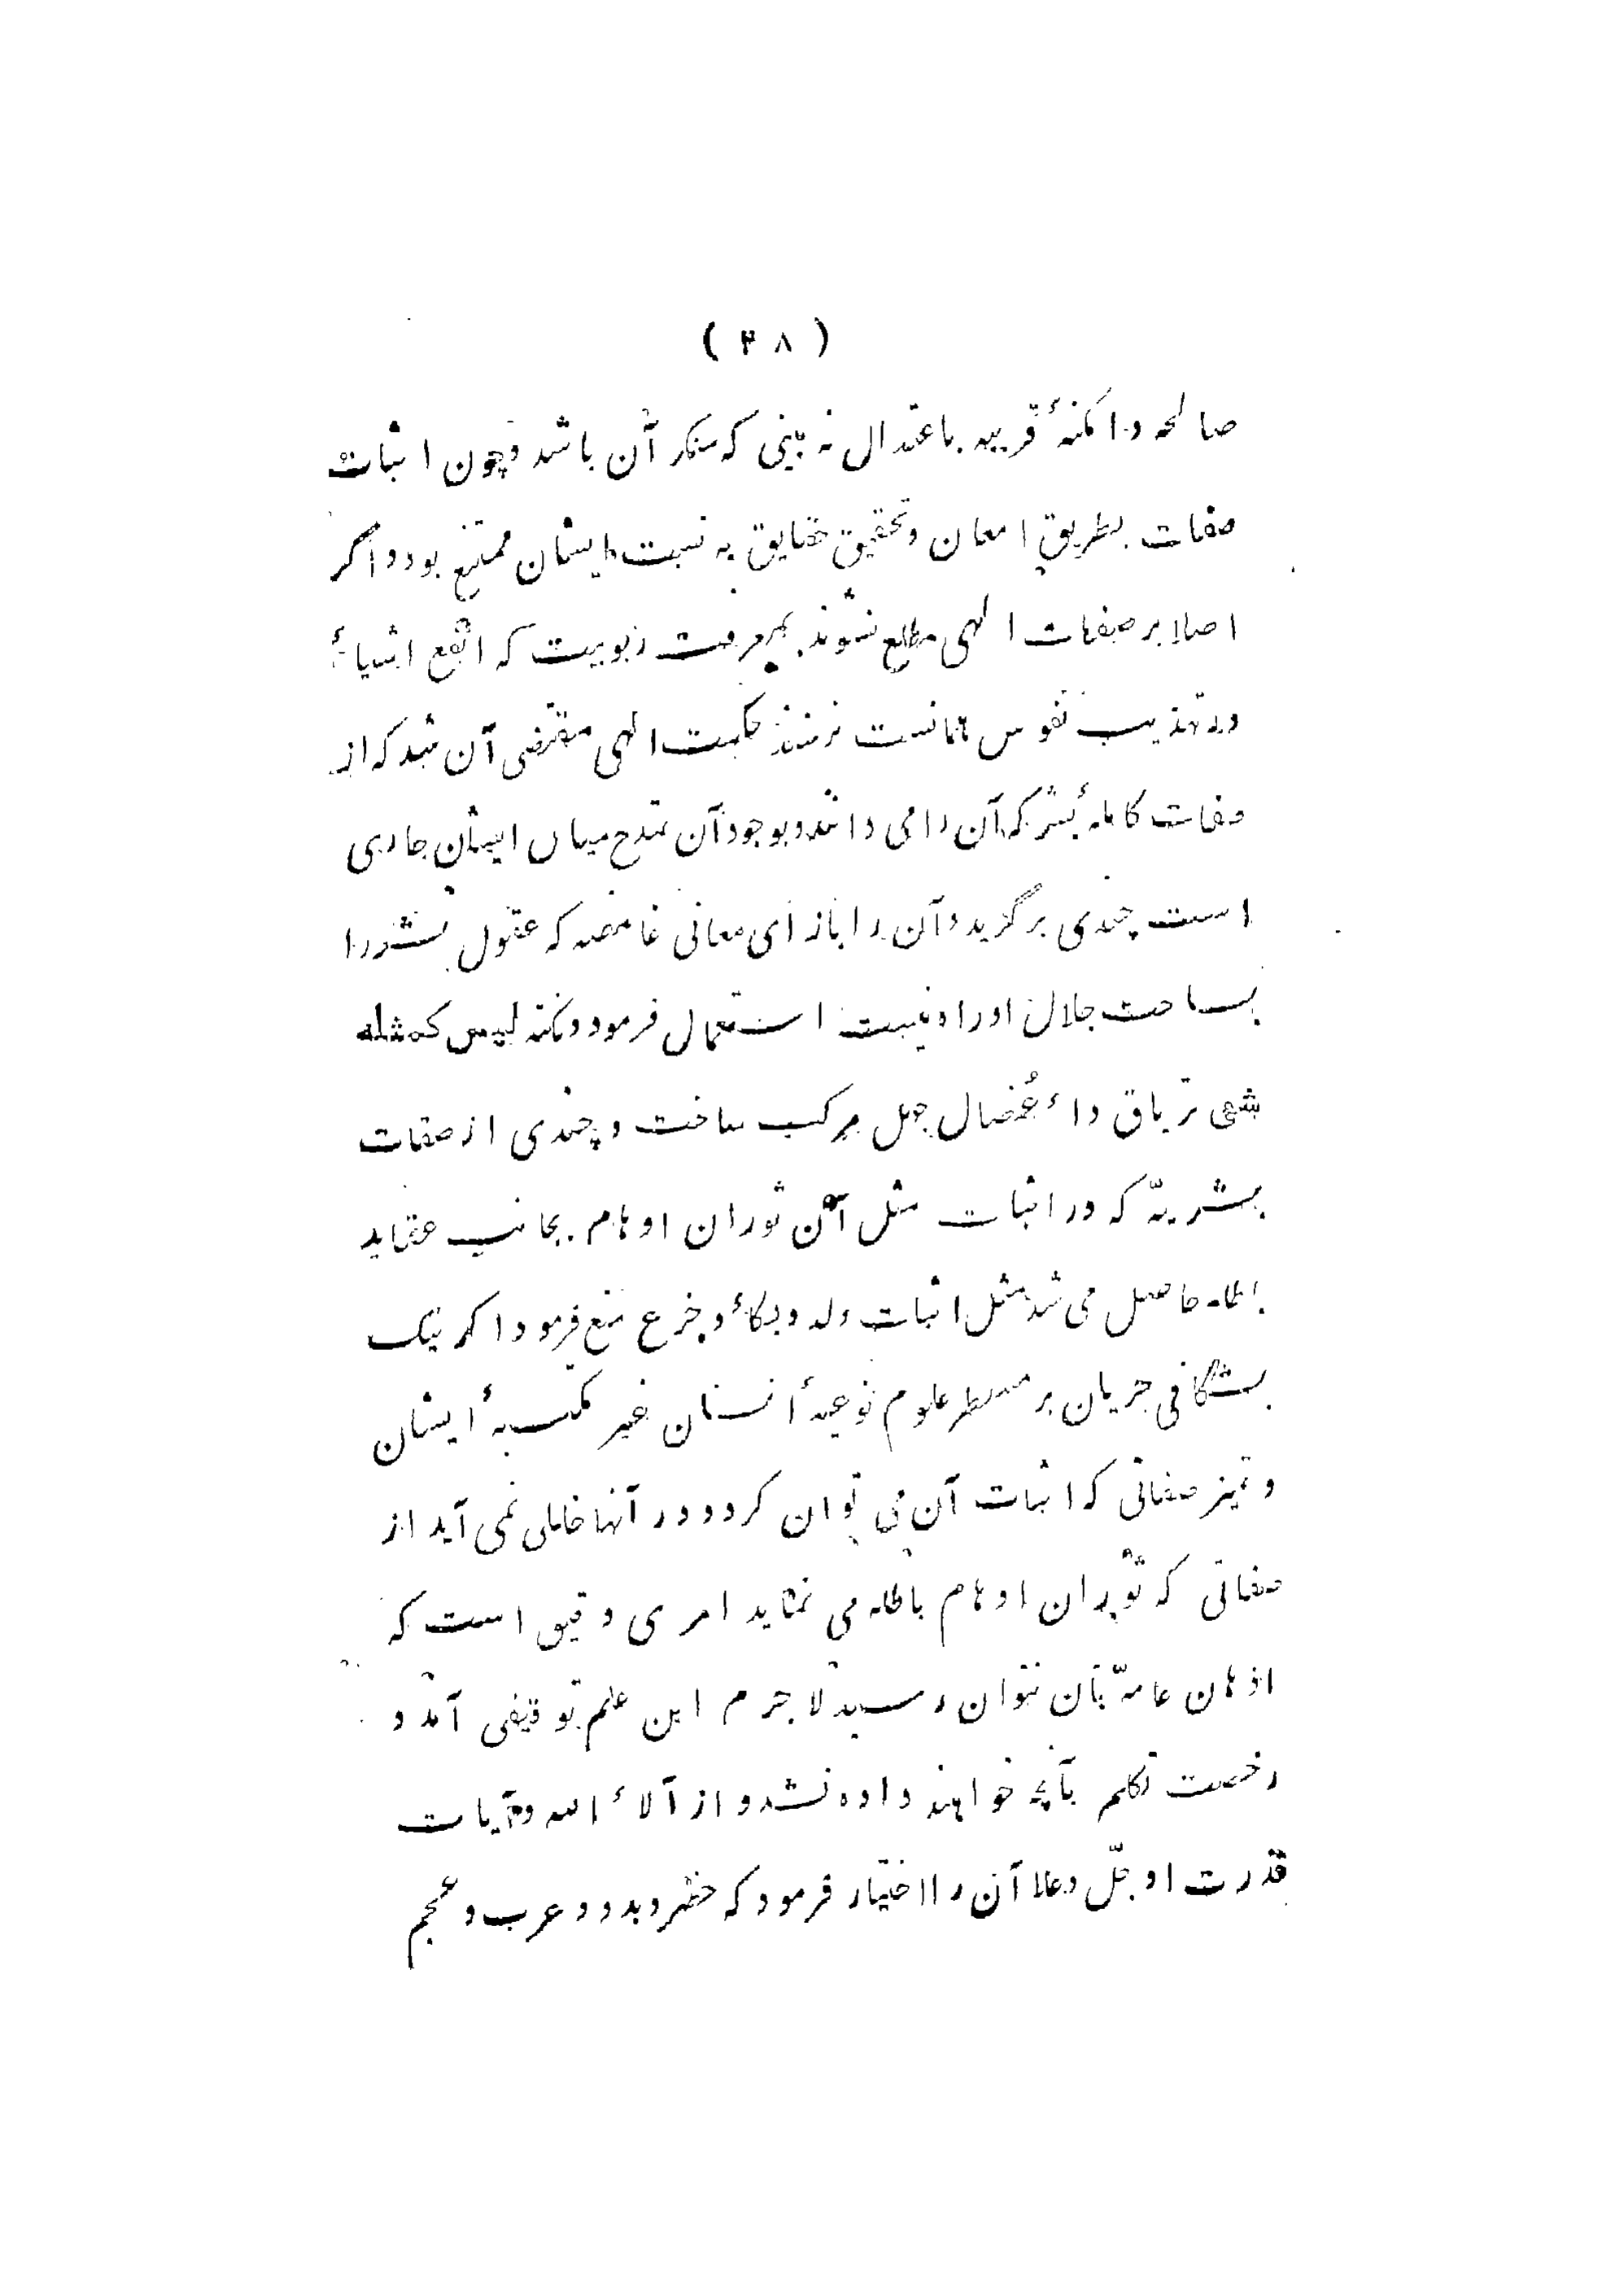 ( ۴۸ )
صالحه و امکنهٔ قریبه باعتدال نه بینی که منکر آن باشد و چون اثبات
صفات بطریق امعان و تحقیق حقایق به نسبت ایشان ممتنع بود و اگر
اصلا بر صفات الهی مطلع نشوند بمعرفت ربوبیت که انفع اشیاءٔ
در تهذیب نفوس همانست نرسند حکمت الهی مقتضی آن شد که از
صفات کاملهٔ بشر که آن را می دانند و بوجود آن تمدح میان ایشان جاری
است چندی برگزید و آن را بازای معانی غامضه که عقول بشر را
بساحت جلال او راه نیست استعمال فرمود و نکته لیس کمثله
شیی تریاق داء عُضال جهل مرکب ساخت و چندی از صفات
بشریّه که در اثبات مثل آن ثوران اوهام بجانب عقاید
باطله حاصل می شد مثل اثبات ولد و بکاء و جزع منع فرمود اگر نیک
بشگافی جریان بر مسطر علوم نوعیهٔ انسان غیر مکتسبهٔ ایشان
و تمیز صفاتی که اثبات آن می توان کرد و در آنها خللی نمی آید از
صفاتی که ثوران اوهام باطله می نماید امری دقیق است که
اذهان عامّه بآن نتوان رسید لا جرم این علم توقیفی آمد و
رخصت تکلم بآنچه خواهند داده نشد و از آلاء الله و آیات
قدرت او جلّ وعلا آن را اختیار فرمود که حضر و بدو و عرب و عجم